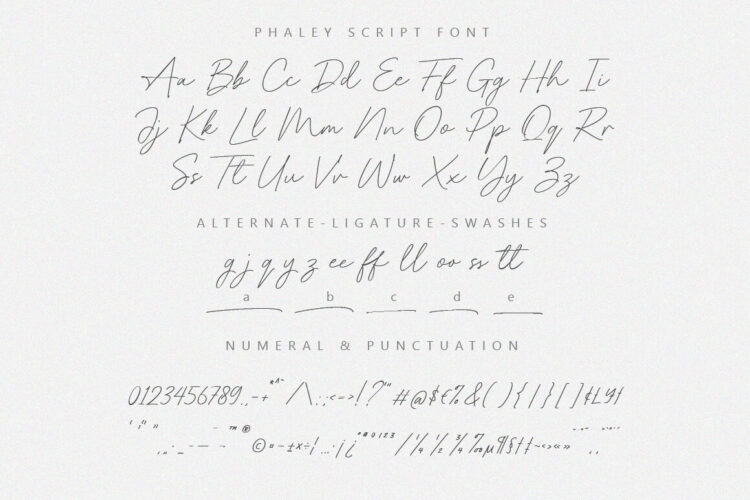 PHALEY SCRIPT FONT
Aa Bb Cc Dd Ee Ff Gg Hh Ii
Jj Kk Ll Mm Nn Oo Pp Qq Rr
Ss Tt Uu Vv Ww Xx Yy Zz
ALTERNATE-LIGATURE-SWASHES
g j q y z ee ff ll oo ss tt
a b c d e
NUMERAL & PUNCTUATION
0123456789.,-+*^~/\:;<=>!?"'#@$€%&(){|}[]¢£¥ƒ
™®
©¤-±x÷¡...·¡¿ºª0123/¼½¾‰µ¶§†‡~‹›«»